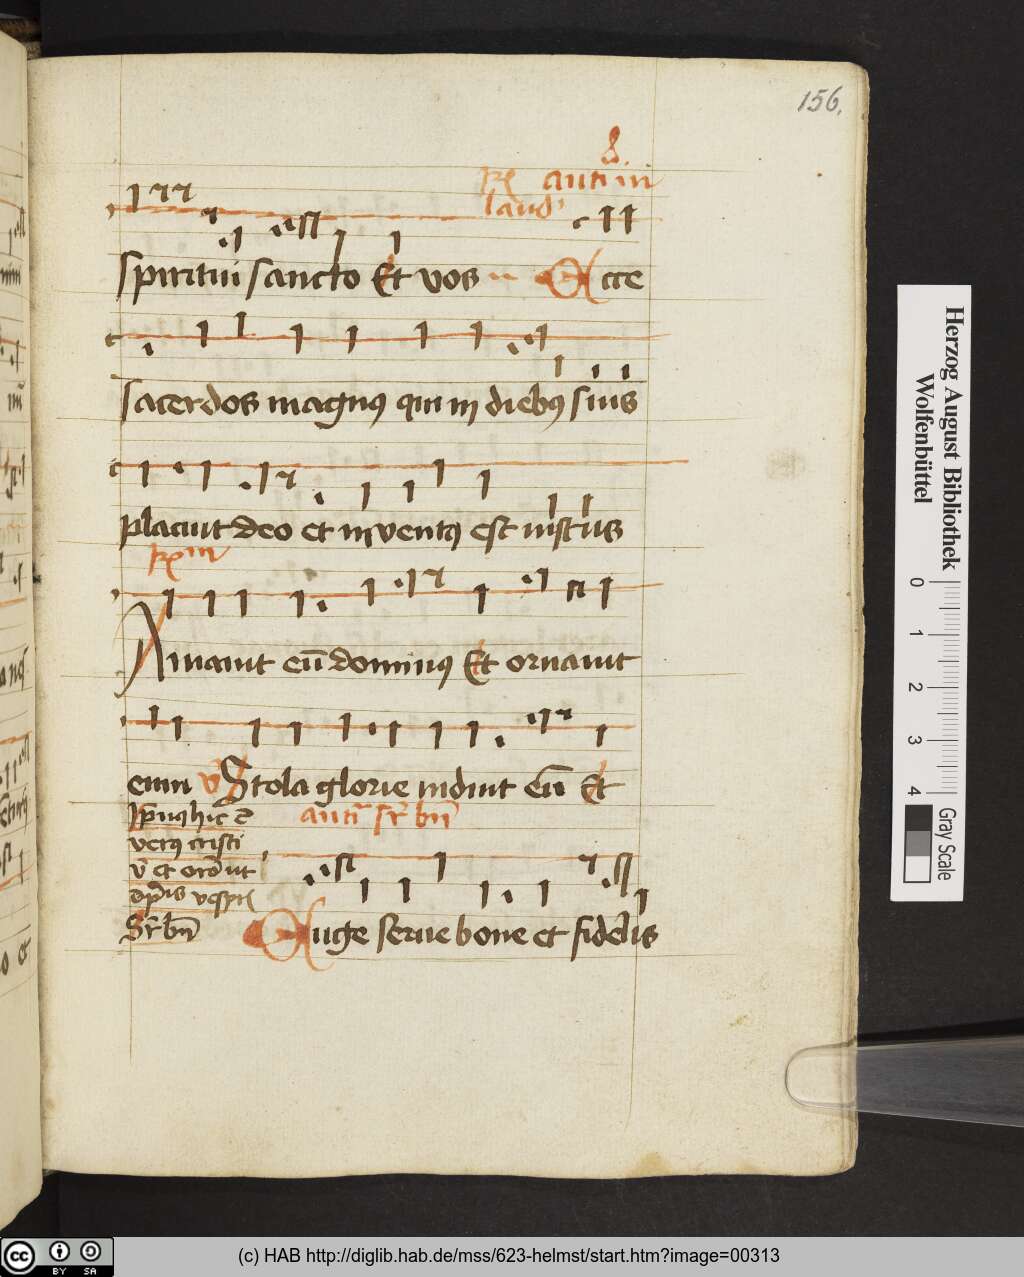 156.
8.
R anti in
laud
spiritui sancto Et vos Ecce
sacerdos magnus qui in diebus suis
placuit deo et inventus est iustus
Rm
Amavit eum dominus Et ornavit
eum V Stola glorie induit eum Et
anti sr bn
verus cristi
V et ordi ut
Sr bn Euge serve bone et fidelis
Herzog August Bibliothek
Wolfenbüttel
0 1 2 3 4
Gray Scale
cc BY SA
(c) HAB http://diglib.hab.de/mss/623-helmst/start.htm?image=00313